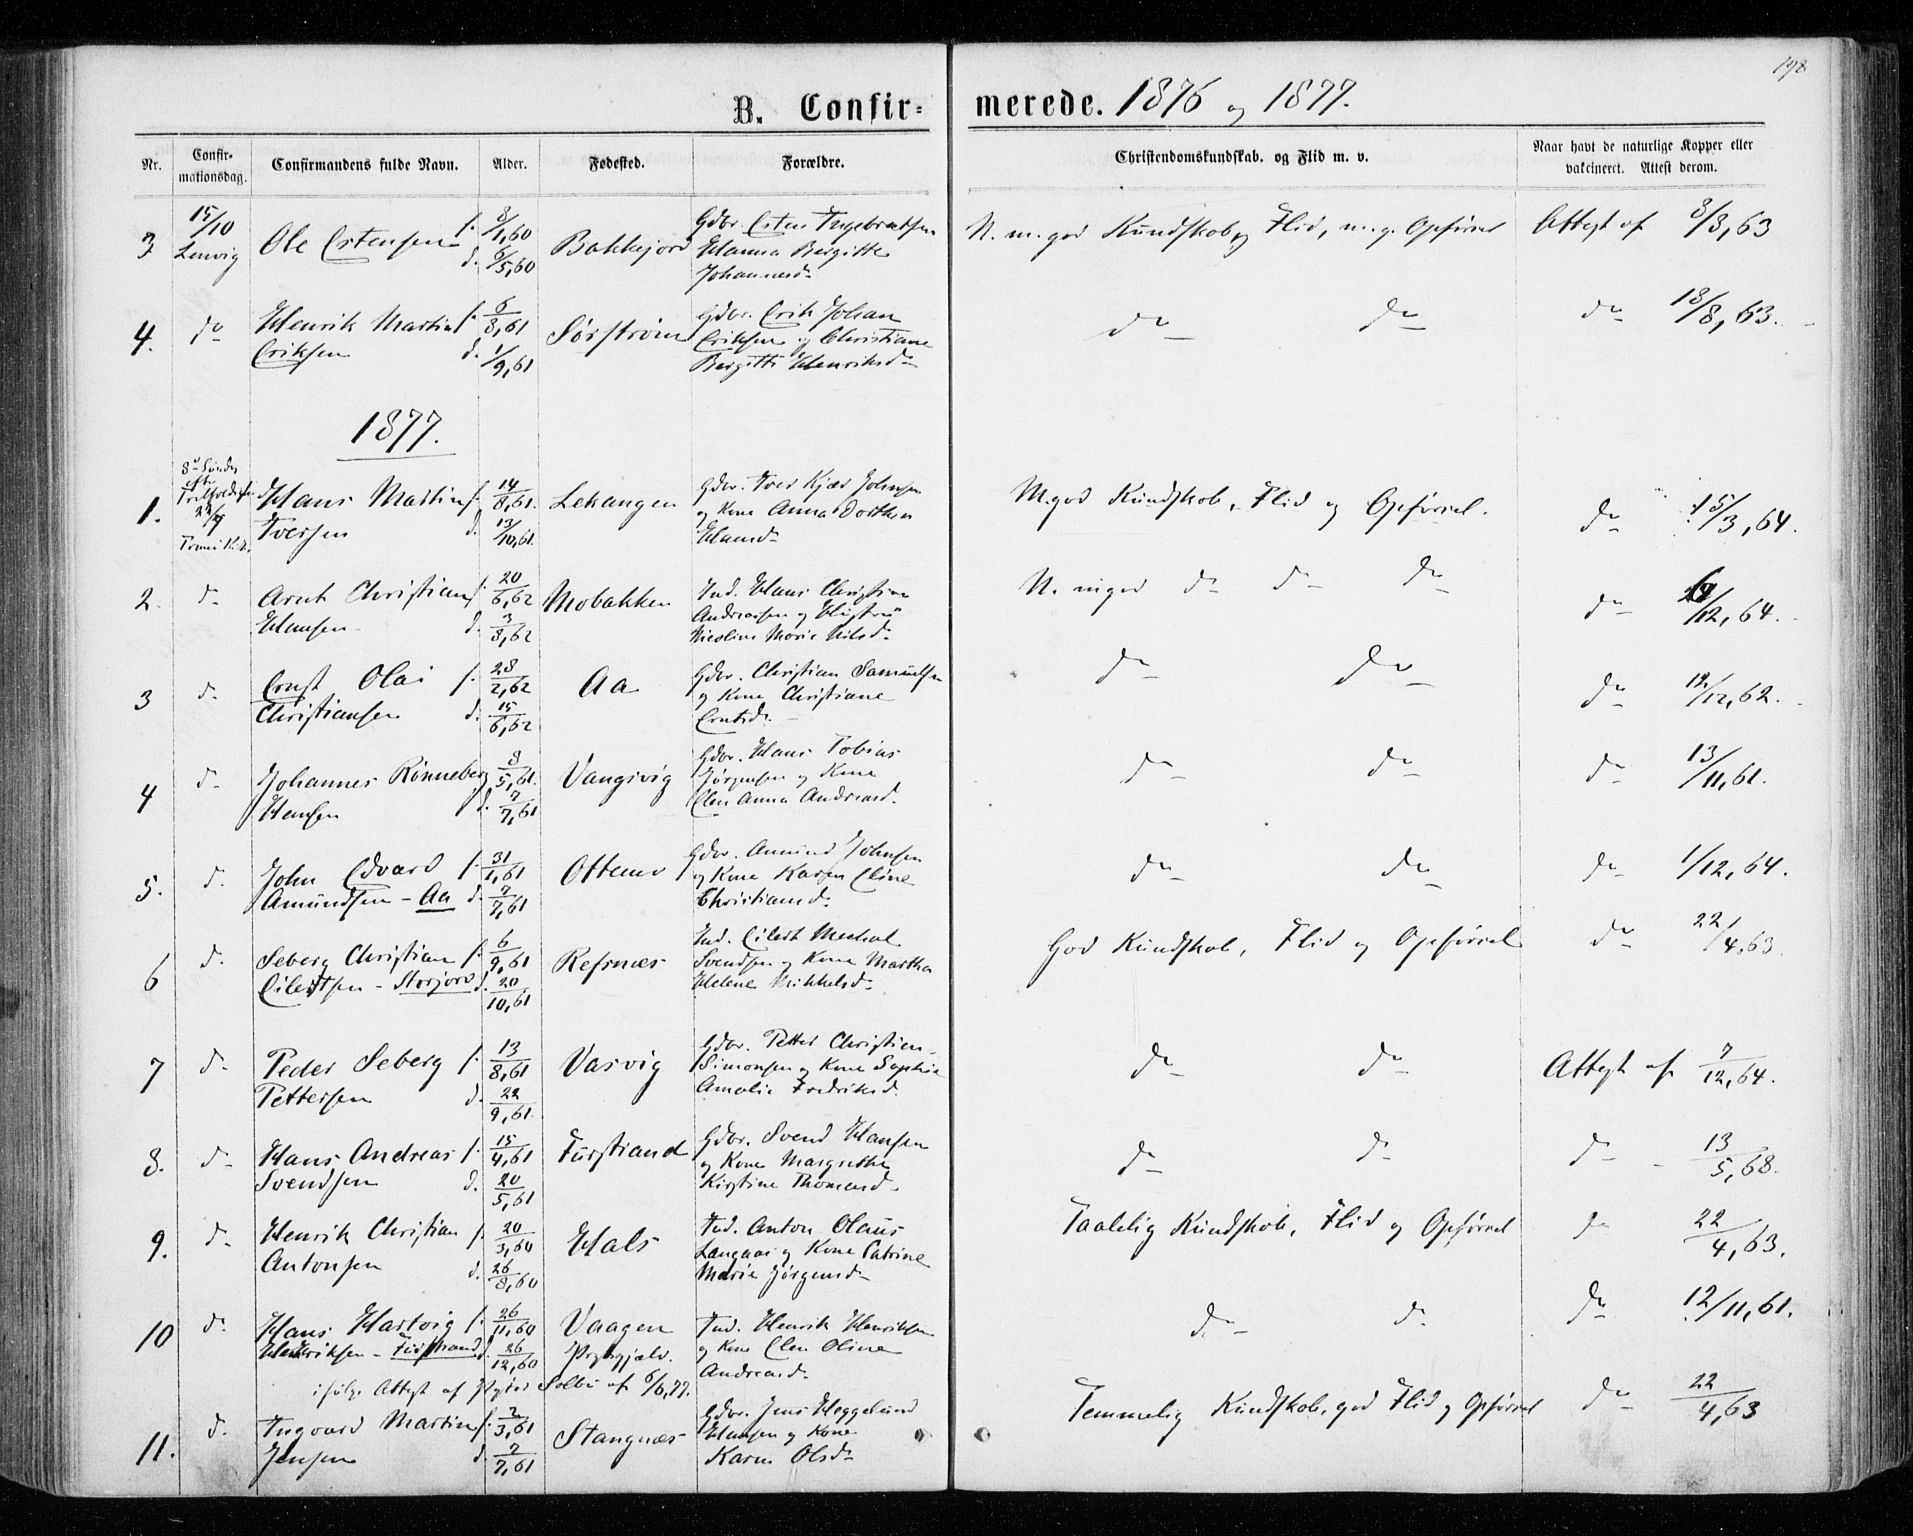 198
B. Confir- merede. 1876 og 1877.
Nr.
Confir-
mationsdag.
Confirmandens fulde Navn.
Alder.
Fødested.
Forældre.
Christendomskundskab. og Flid m. v.
Naar havt de naturlige Kopper eller
vakcineret. Attest derom.
3 15/10 Ole Estensen f. 3/1,60 Bakkejord Gdbr. Esten Ingebrigtsen N. m. god Kundskab og Flid, m. g. Opførsel Attest af 8/3,63
Lenvig d. 6/5,60 Hanna Birgitte
Johannesd.
4. do Henrik Martin f. 6/8,61 Sørstrøm Gdbr. Erik Johan do do do 18/8,63.
Eriksen d. 1/9,61 Eriksen og Christiane
Birgitte Henriksd.
1877.
8de Søndag
efter
Trefoldigh.
1. Hans Martin f. 14/8,61. Lekangen Gdbr. Iver Kjær Johnsen M. god Kundskab, Flid og Opførsel. do 15/3,64.
Iversen d. 13/10,61. og Kone Anna Dorthea
Hansd.
2. d. Arnt Christian f. 20/6,62 Mobakken Ind. Hans Christian N. m god do do do do /12,64.
Hansen d. 3/8,62 Andreassen og Hustru
Nicoline Marie Nilsd.
3 d. Ernst Olai f. 28/2,62 Aa Gdbr. Christian Samuelsen do do do 12/12,62.
Christiansen d. 15/6,62 og Kone Christiane
Erntsd.
4 d. Johannes Rønneberg 3/5,61. Vangsvig Gdbr. Hans Tobias do do do 13/11,61.
Hansen d. 7/7,61 Jørgensen og Kone
Elen Anna Andreasd.
5. d. John Edvard f. 31/1,61 Gdbr. Amund Johnsen do do do 1/12,64.
Amundsen - Aa d. 7/7,61 og Kone Karen Eline
Christiansd.
6 d. Seberg Christian f. 6/9,61 Refsnæs Ind. Eilert Mechal God Kundskab, Flid og Opførsel do 22/4,63.
Eilertsen - Storjord d. 20/10,61 Svendsen og Kone Martha
Helene Mikkelsd.
7 d. Peder Seberg f. 13/8,61 Vasvig Gdbr. Petter Christian do do Attest af 7/12,64.
Pettersen d. 22/9,61. Simonsen og Kone Sophie
Amalie Fredriksd.
8. d. Hans Andreas f. 15/4,61 Furstrand Gdbr. Svend Hansen do do do 13/5,68.
Svendsen d. 20/5,61 og Kone Margrethe
Kirstine Thomasd.
9. d. Henrik Christian f. 20/3,60 Hals Ind. Anton Olaus Taalelig Kundskab, Flid og Opførsel do 22/4,63.
Antonsen d. 26/8,60 Langaas og Kone Catrine
Marie Jørgensd.
10 d. Hans Hartvig f. 26/11,60 Vaagen Ind. Henrik Henriksen do do do 12/11,61.
Henriksen - Furstrand d. 26/12,60 Prgjæld. og Kone Elen Oline
ifølge Attest af Solbu af 6/6,77. Andreasd.
11. d. Ingvard Martin f. 2/3,61 Stangnæs Gdbr. Jens Heggelund Temmelig Kundskab, god Flid og Opførsel do 22/4,63
Jensen d. 7/7,61 Hansen og Kone
Karen Olsd.